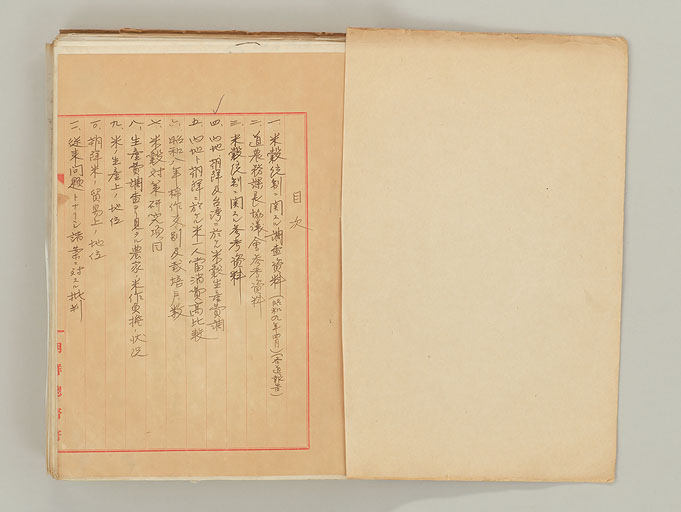 目次
一、米穀統制ニ関スル調査資料(昭和九年四月)(各道報告)
二、道農務課長協議會参考資料
三、米穀統制ニ関スル参考資料
四、内地朝鮮及台湾ニ於ケル米穀生産費調
五、内地ト朝鮮ニ於ケル米一人當消費高比較
六、昭和八年棉作反別及栽培戸数
七、米穀対策研究項目
八、生産費調査ヨリ見タル農家ノ米作更推ノ状況
九、米ノ生産上ノ地位
一〇、朝鮮米ノ貿易上ノ地位
一一、従来問題トナリシ諸案ニ対スル批判
朝鮮總督府